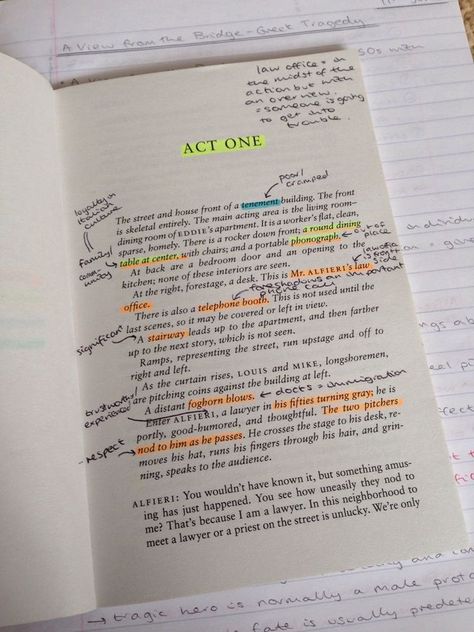 A View from the Bridge - Greek Tragedy
50s with
law office = in
the midst of the
action but with
an overview.
= someone is going
to get into
trouble.
ACT ONE
poor/
cramped
The street and house front of a tenement building. The front
is skeletal entirely. The main acting area is the living room–
dining room of EDDIE's apartment. It is a worker's flat, clean,
sparse, homely. There is a rocker down front; a round dining
table at center, with chairs; and a portable phonograph.
At back are a bedroom door and an opening to the
kitchen; none of these interiors are seen.
At the right, forestage, a desk. This is Mr. ALFIERI's law
office.
There is also a telephone booth. This is not used until the
last scenes, so it may be covered or left in view.
A stairway leads up to the apartment, and then farther
up to the next story, which is not seen.
Ramps, representing the street, run upstage and off to
right and left.
As the curtain rises, LOUIS and MIKE, longshoremen,
are pitching coins against the building at left.
A distant foghorn blows.
Enter ALFIERI, a lawyer in his fifties turning gray; he is
portly, good-humored, and thoughtful. The two pitchers
nod to him as he passes. He crosses the stage to his desk, re-
moves his hat, runs his fingers through his hair, and grin-
ning, speaks to the audience.
loyalty in
Italian
culture
family/
community
out of
place
law office
is front
side
foreshadows an important
phone call
significant
docks = immigration
trustworthy/
experienced
respect
ALFIERI: You wouldn't have known it, but something amus-
ing has just happened. You see how uneasily they nod to
me? That's because I am a lawyer. In this neighborhood to
meet a lawyer or a priest on the street is unlucky. We're only
→ tragic hero is normally a male prota
fate is usually predete